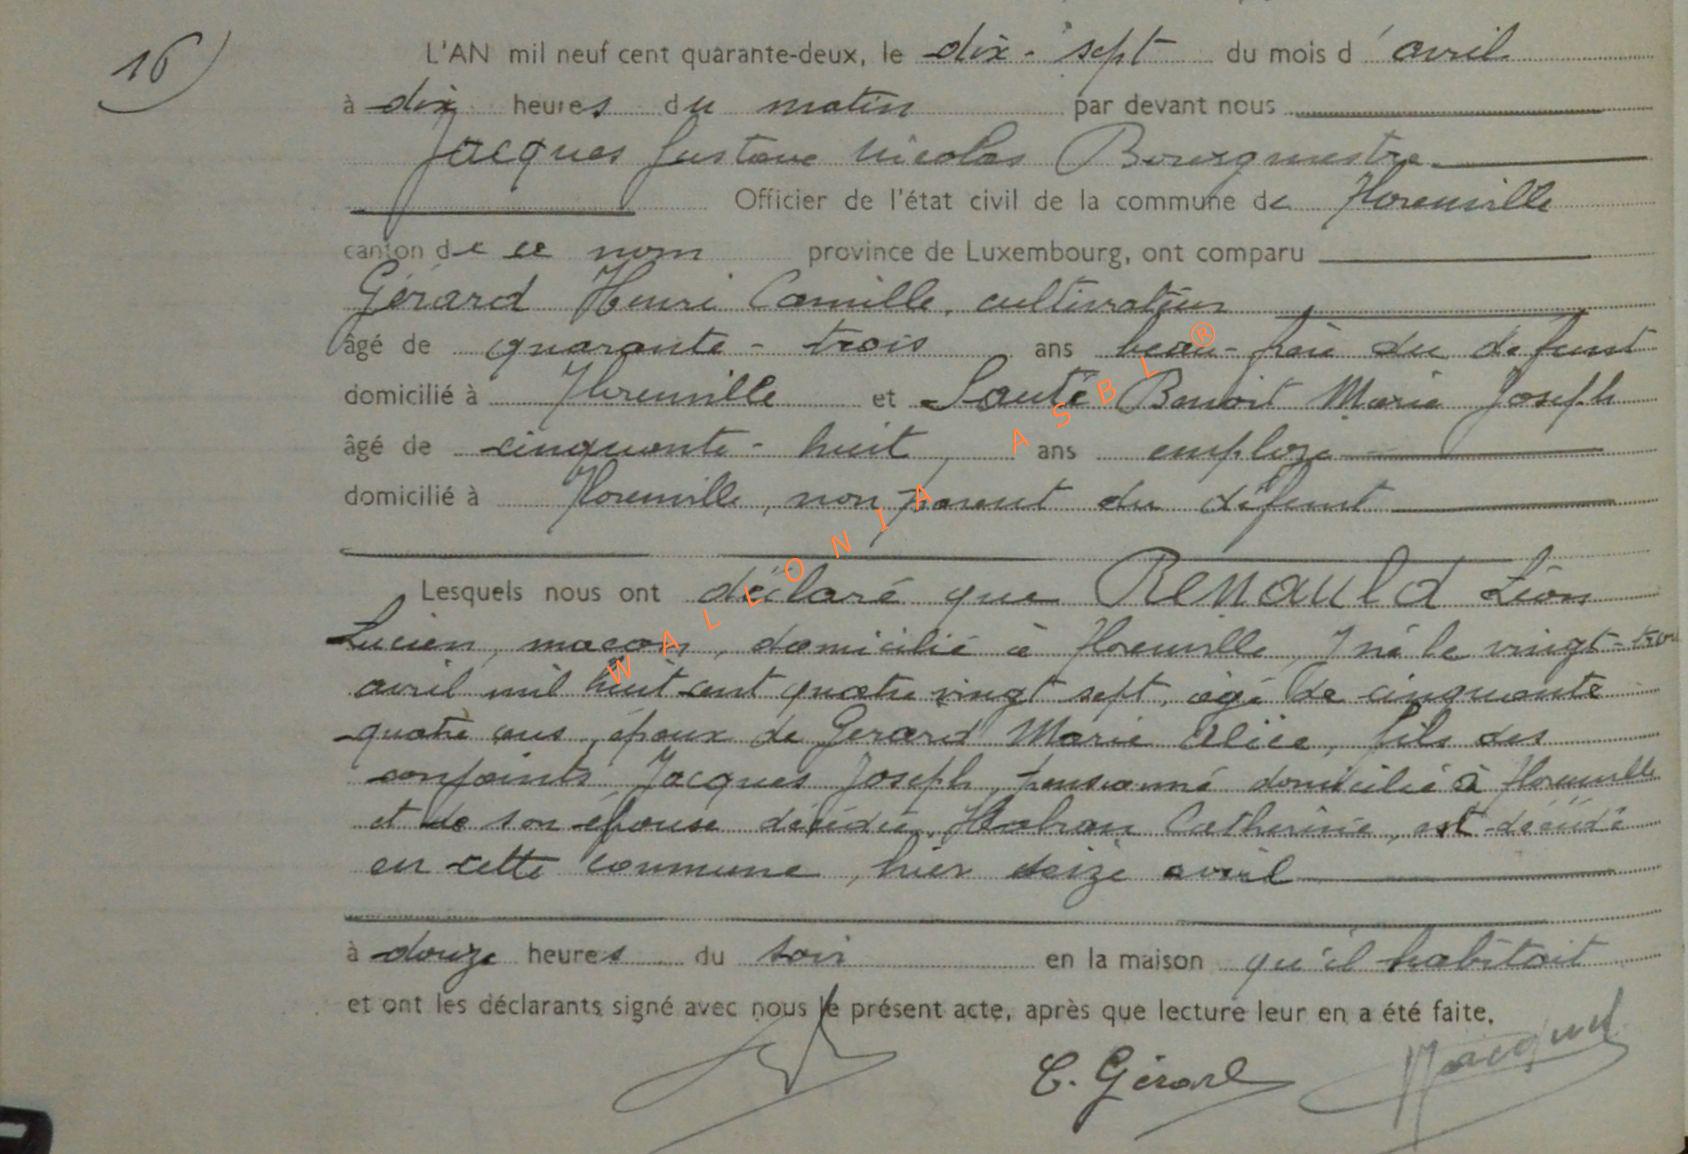 16)
L'AN mil neuf cent quarante-deux, le dix-sept du mois d'avril
à dix heures du matin par devant nous
Jacques Gustave Nicolas Bourgmestre
Officier de l'état civil de la commune de Florenville
canton de ce nom province de Luxembourg, ont comparu
Gérard Henri Camille, cultivateur
âgé de quarante-trois ans beau-frère du défunt
domicilié à Florenville et Benoit Marie Joseph
âgé de cinquante-huit ans employé
domicilié à Florenville, non parent du défunt
Lesquels nous ont déclaré que Renauld Léon
Lucien, maçon, domicilié à Florenville, né le vingt-trois
avril mil huit cent quatre vingt sept, âgé de cinquante
quatre ans, époux de Gérard Marie Alice, fils des
conjoints Jacques Joseph, pensionné domicilié à Florenville
et de son épouse décédée, Catherine, est décédé
en cette commune, hier seize avril
à douze heures du soir en la maison qu'il habitait
et ont les déclarants signé avec nous le présent acte, après que lecture leur en a été faite.
C. Gérard
WALLONIA ASBL ®